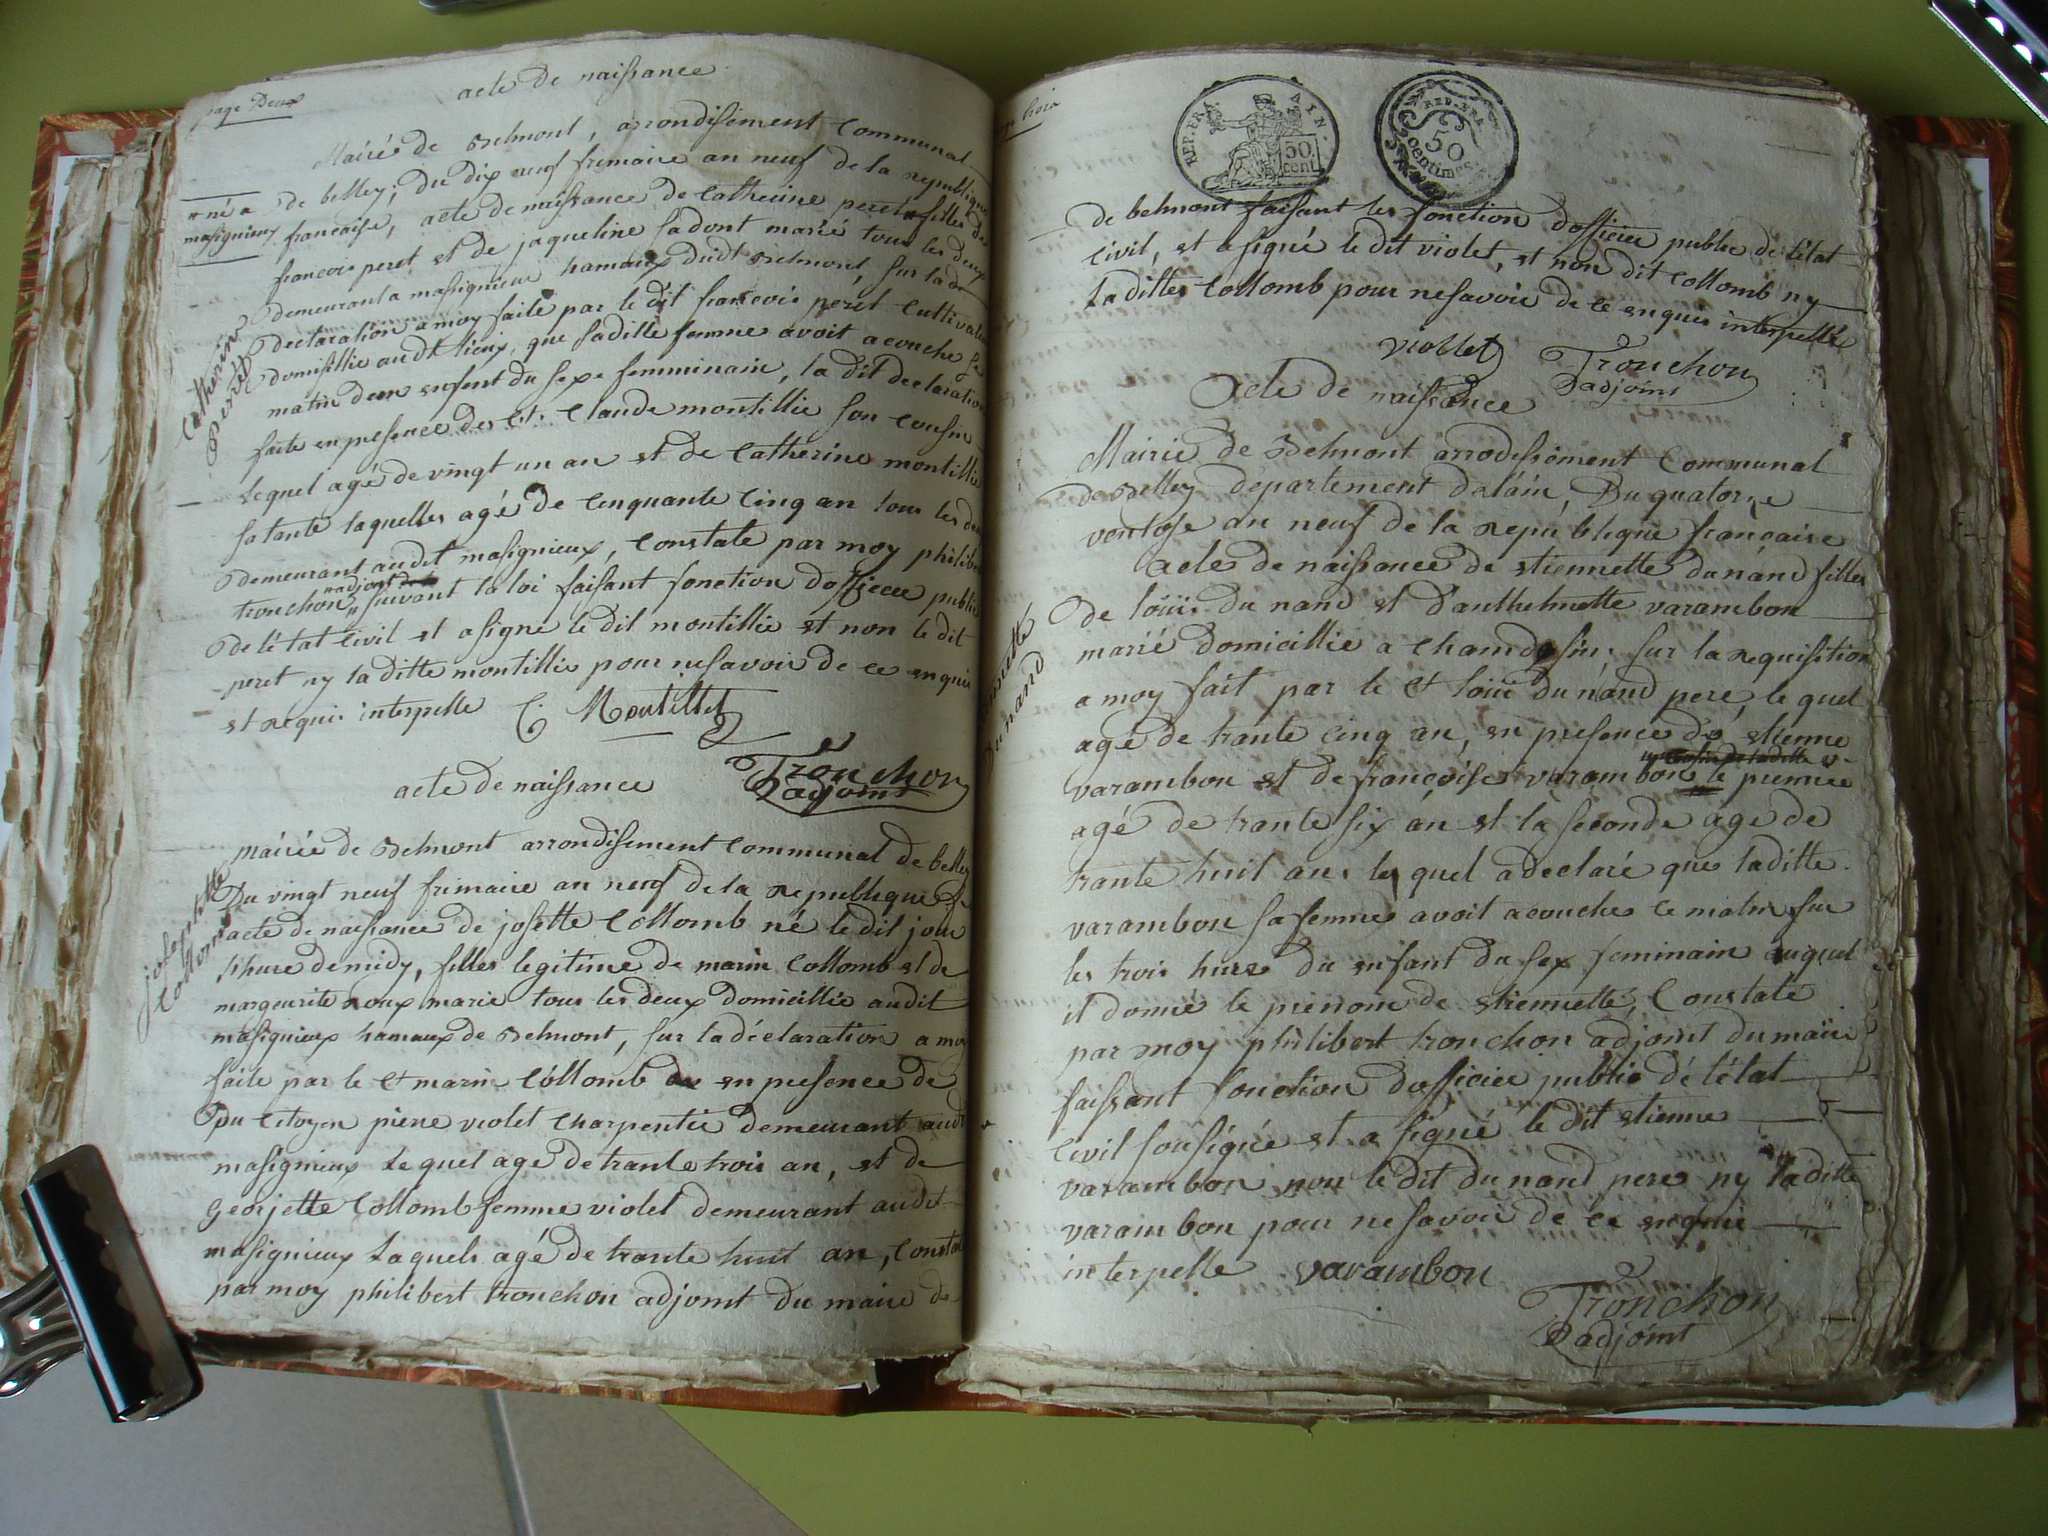 page Deux
acte de naissance
Mairé de Belmont, arrondisement Communal
de belley, du dix neuf frimaire an neuf de la republique
* né a
masignieux
francaise, acte de naissance de Catherine peret * filles de
francois peret et de jaqueline sadont marié tous les deux
demeurant a masignieux hamaux dudt Belmont, sur la de
declaration a moy faite par le dit francois peret Cultivateur
domisillie audt lieux, que saditte femme avoit acouche ce
matin deun enfent du sexe femminain, la dit declaration
Catherine
Peret
faite en presence des Ct. Claude montillie son cousin
lequel agé de vingt un an et de Catherine montillie
sa tante laquelles agé de cinquante cinq an tous les deux
demeurant audit masignieux, constate par moy philibert
adjoint
tronchon suivant la loi faisant fonction dofficier public
de létat civil et a signe le dit montillie et non le dit
peret ny la ditte montillie pour ne savoir de ce enquis
et requis interpelle C. Montillet
Tronchon
adjoint
acte de naissance
mairée de Belmont arrondisement Communal de belley
Du vingt neuf frimaire an neuf de la republique f
acte de naissance de josette Collomb né le dit jour
josephtte
Collomb
lhure demidy, filles legitime de marin Collomb et de
margeurite roux marie tous les deux domicillie audit
masignieux hamaux de Belmont, sur la déclaration a moy
faite par le Ct marin Collomb en presence de
Du Citoyen piere violet charpentie demeurant audt
masignieux lequel age de trante trois an, et de
georjette Collomb femme violet demeurant audt
masignieux laquels agé de trante huit an, constate
par moy philibert tronchon adjoint du maire de
page trois
REP. FRA. AIN.
50 cent.
REP. FRA.
50
centimes
de belmont faisant les fonction dofficier public de létat
civil, et a signé le dit violet, et non dit Collomb ny
la dittes Collomb pour ne savoir de ce enquis interpellé
violet Tronchon
adjoint
Acte de naissance
Mairie de Belmont arrodissement Communal
de Belley departement delain, Du quatorze
ventose an neuf de la republique française
acte de naissance de etiennette dunand filles
de loüis du nand et d'anthelmette varambon
etiennette
Dunand
marié domicillie a chamdosin, sur la requisition
a moy fait par le Ct loüi du nand pere, le quel
agé de trante cinq an, en presence de etienne
varambon et de françoise varambon le premier
agé de trante six án et la seconde age de
trante huit ans lequel a declaré que laditte
varambon sa femme avoit acouche ce matin sur
les trois hures du enfant du sex feminain auquel
il donné le prenom de etiennette, Constaté
par moy philibert tronchon adjoint du maire
faissant fonction dofficier public dé létat
civil sousigiée et a signé le dit etienne
varambon non le dit du nand pere ny laditte
varambon pour ne savoir de ce enquis
interpelle varambon
Tronchon
adjoint